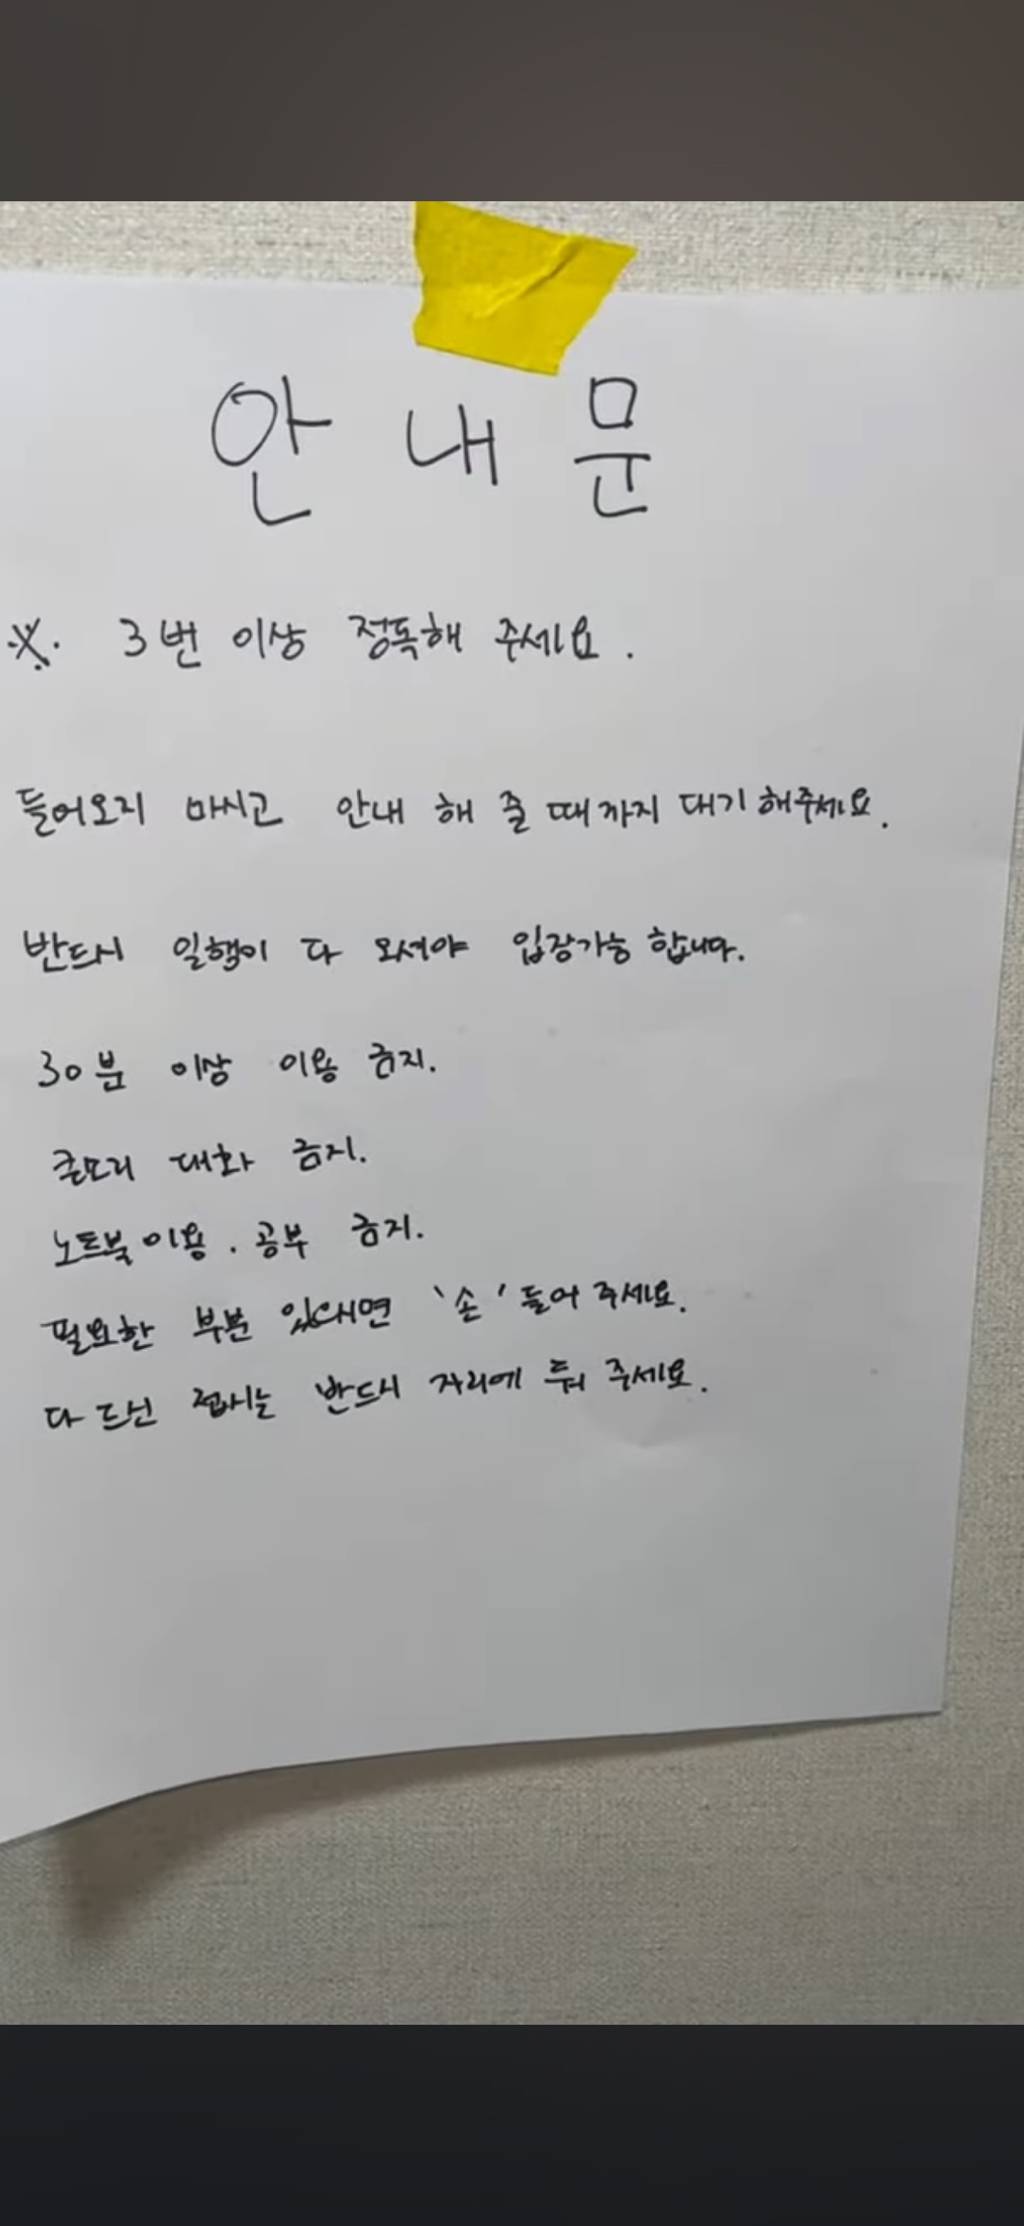 안내문
※. 3번 이상 정독해 주세요.
들어오지 마시고 안내 해 줄 때까지 대기해주세요.
반드시 일행이 다 오셔야 입장가능 합니다.
30분 이상 이용 금지.
큰소리 대화 금지.
노트북이용. 공부 금지.
필요한 부분 있으시면 '손' 들어 주세요.
다 드신 접시는 반드시 자리에 둬 주세요.